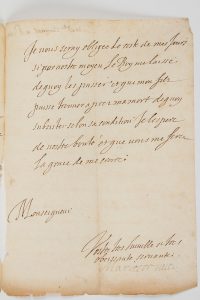 Je vous seray obligée le reste de mes jours
si par vostre moyen Le Roy me laisse
de quoy les passer et que mon filz
puisse trouver apres ma mort de quoy
subsister selon sa condition Je l'espere
de vostre bonté et que vous me ferez
la grace de me croire
Monseigneur
Vostre tres humble et tres
obeissante servante